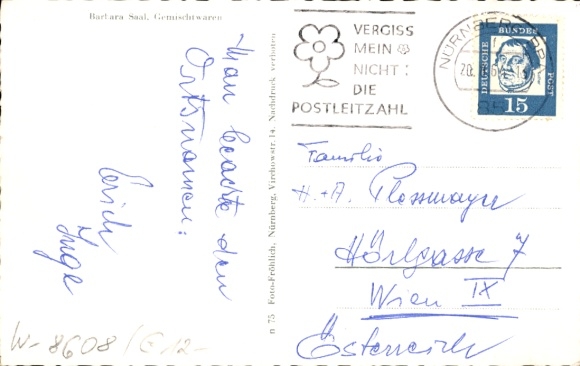 Barbara Saal, Gemischtwaren
Man beachte den
Ortsnamen:
Erich
Inge
W- 8608/G 12-
n 75 Foto-Fröhlich, Nürnberg, Virchowstr. 14. Nachdruck verboten
VERGISS
MEIN
NICHT:
DIE
POSTLEITZAHL
NÜRNBERG
20.
85
DEUTSCHE BUNDESPOST
15
Familie
H.+A. Plossmayer
Hörlgasse 7
Wien IX
Österreich